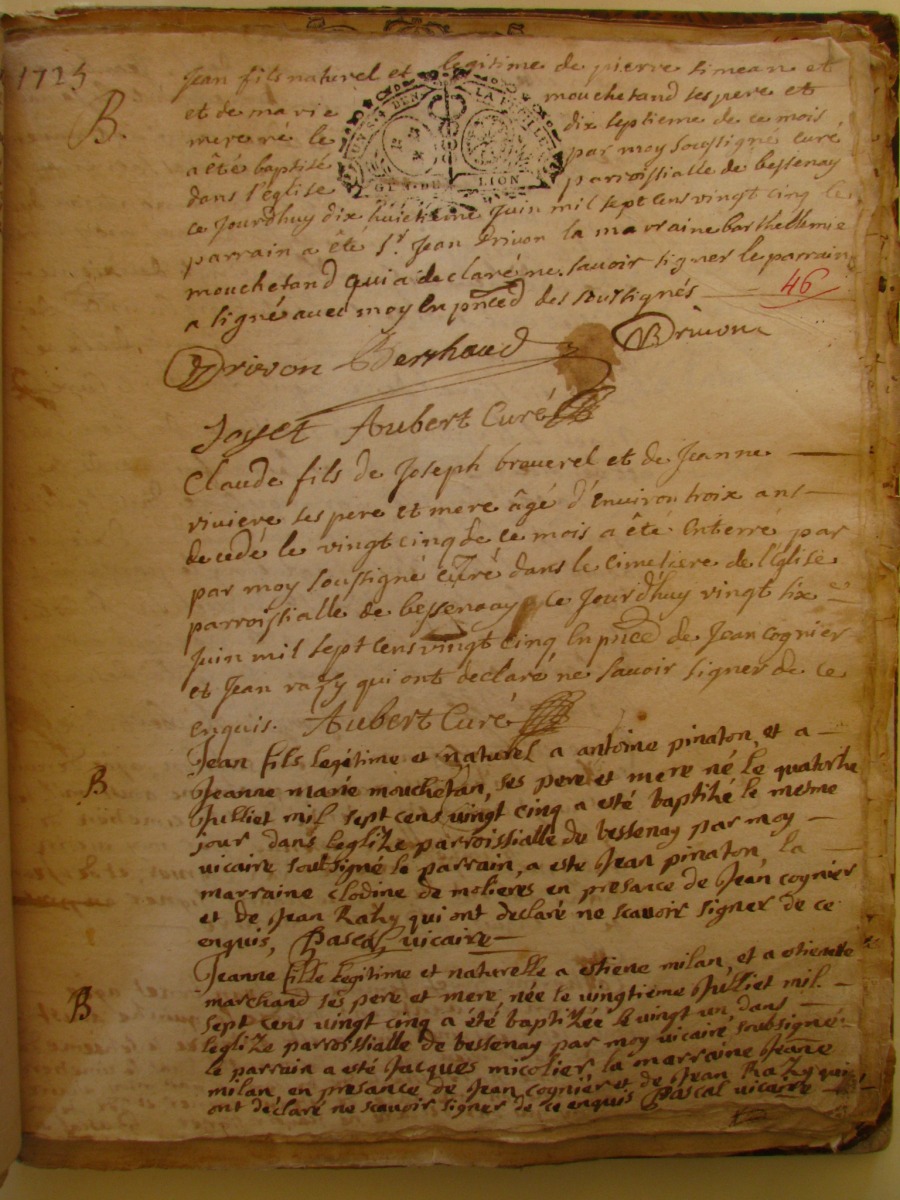 1725
Jean fils naturel et legitime de pierre simean et
B. et de marie mouchetand ses pere et
mere né le dix septieme de ce mois
a été baptisé par moy soussigné curé
dans l'église parroissialle de bessenay
ce jourdhuy dix huictieme juin mil sept cens vingt cinq le
parrain a été Sr Jean Drivon la marraine barthellemie
mouchetand qui a declaré ne savoir signer le parrain
a signé avec moy En pñce des soussignés 46
GEN. DE LION
Drivon Berthaud Drivon
Joyet Aubert Curé
Claude fils de Joseph brouerel et de Jeanne
riviere ses pere et mere âgé d'Environ troix ans
decedé le vingt cinq de ce mois a été Enterré par
par moy soussigné curé dans le cimetiere de l'Eglise
parroissialle de bessenay ce jourd'huy vingt six
juin mil sept cens vingt cinq En pñce de Jean cognier
et Jean razy qui ont declaré ne savoir signer de ce
enquis. Aubert Curé
Jean fils legitime et naturel a antoine pinaton, et a
B Jeanne marie mouchetan, ses pere et mere né le quatorze
Julliet mil sept cens vingt cinq a esté baptizé le mesme
jour dans leglize parroissialle du bessenay par moy
vicaire soubsigné le parrain, a esté Jean pinaton, la
marraine Clodine de molieres en presance de Jean cognier
et de Jean Razy qui ont declaré ne scavoir signer de ce
enquis, Pascal vicaire
Jeanne fille legitime et naturelle a estiene milan, et a estienette
B marchand ses pere et mere, née le vingtieme Julliet mil
sept cens vingt cinq a été baptizée le vingt un, dans
leglize parroissialle de bessenay par moy vicaire soubsigné
le parrain a esté Jacques micolier, la marraine Jeane
milan, en presance de Jean Cognier et de Jean Razy qui
ont declaré ne scavoir signer de ce enquis Pascal vicaire